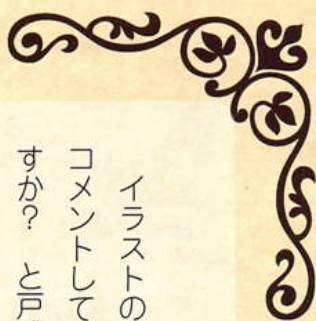 イラストの
コメントして
すか？　と戸